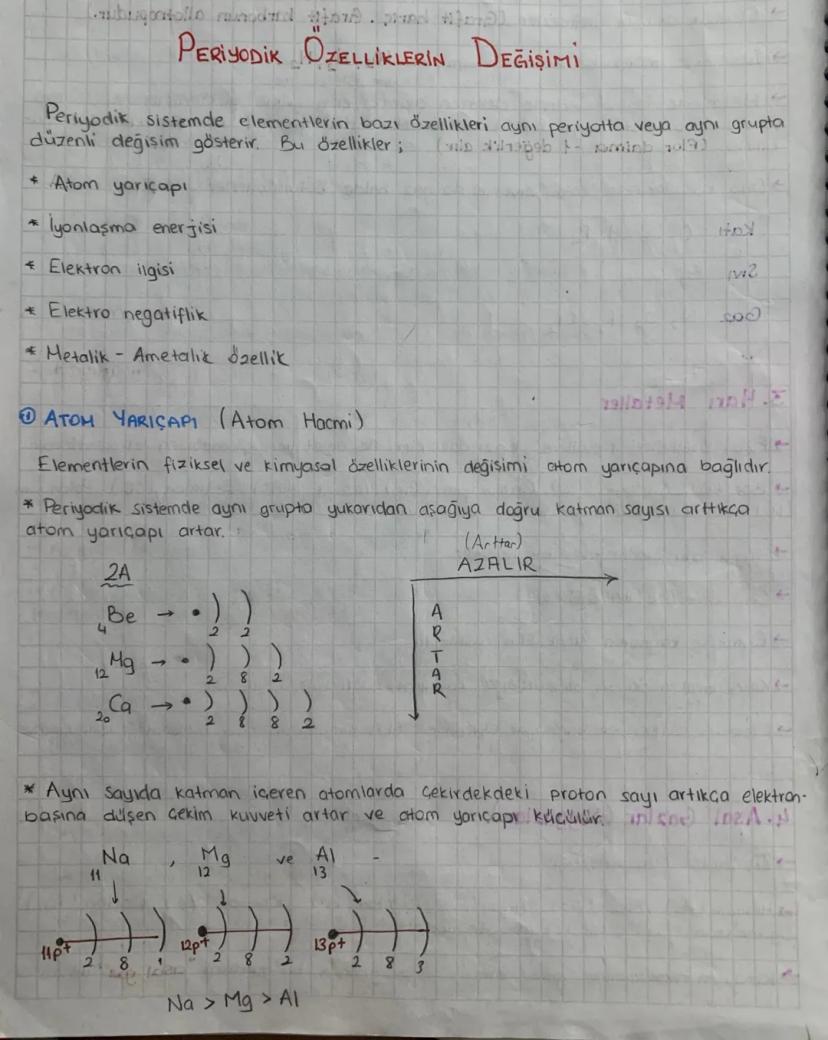 PERİYODİK ÖZELLİKLERİN DEĞİŞİMİ
Periyodik sistemde elementlerin bazı özellikleri aynı periyotta veya aynı grupta
düzenli değişim gösterir. Bu özellikler;
* Atom yarıçapı
* İyonlaşma enerjisi
* Elektron ilgisi
* Elektro negatiflik
* Metalik - Ametalik özellik
① ATOM YARIÇAPI (Atom Hacmi)
Elementlerin fiziksel ve kimyasal özelliklerinin değişimi atom yarıçapına bağlıdır.
* Periyodik sistemde aynı grupta yukarıdan aşağıya doğru katman sayısı arttıkça
atom yarıçapı artar.
(Arttar)
AZALIR
ARTAR
2A
4Be → •) )
2 2
12Mg → •) ) )
2 8 2
20Ca → •) ) ) )
2 8 8 2
* Aynı sayıda katman içeren atomlarda çekirdekdeki proton sayı artıkça elektron-
başına düşen çekim kuvveti artar ve atom yarıçapı küçülür.
11Na , 12Mg ve 13Al -
11p+ 2 8 1 12p+ 2 8 2 13p+ 2 8 3
Na > Mg > Al